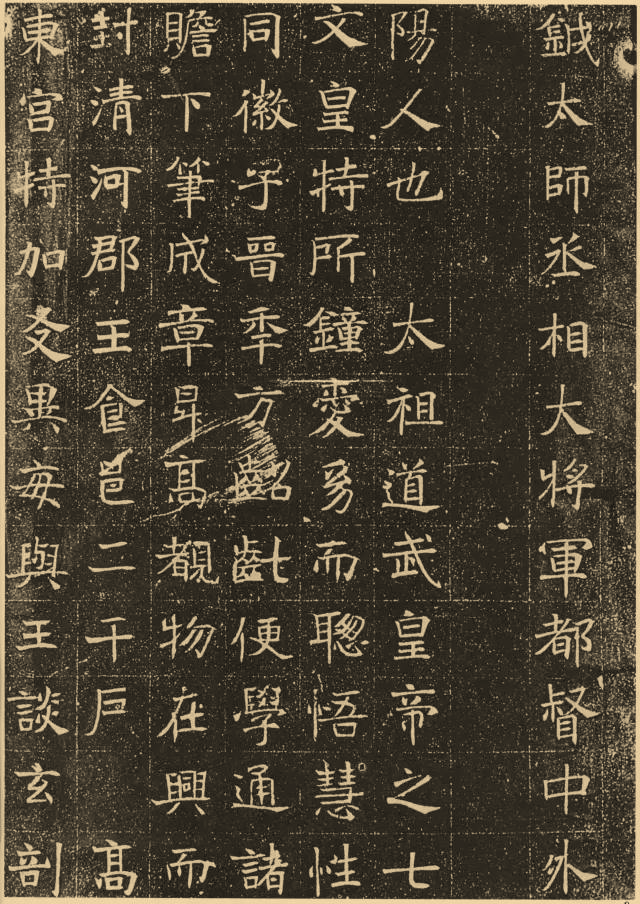 鉞太師丞相大將軍都督中外
陽人也　太祖道武皇帝之七
文皇特所鐘愛幼而聰悟慧性
同徽子晉秊方齠齔便學通諸
贍下筆成章昇高覩物在興而
封清河郡王食邑二千戶　高
東宮特加友異每與王談玄剖